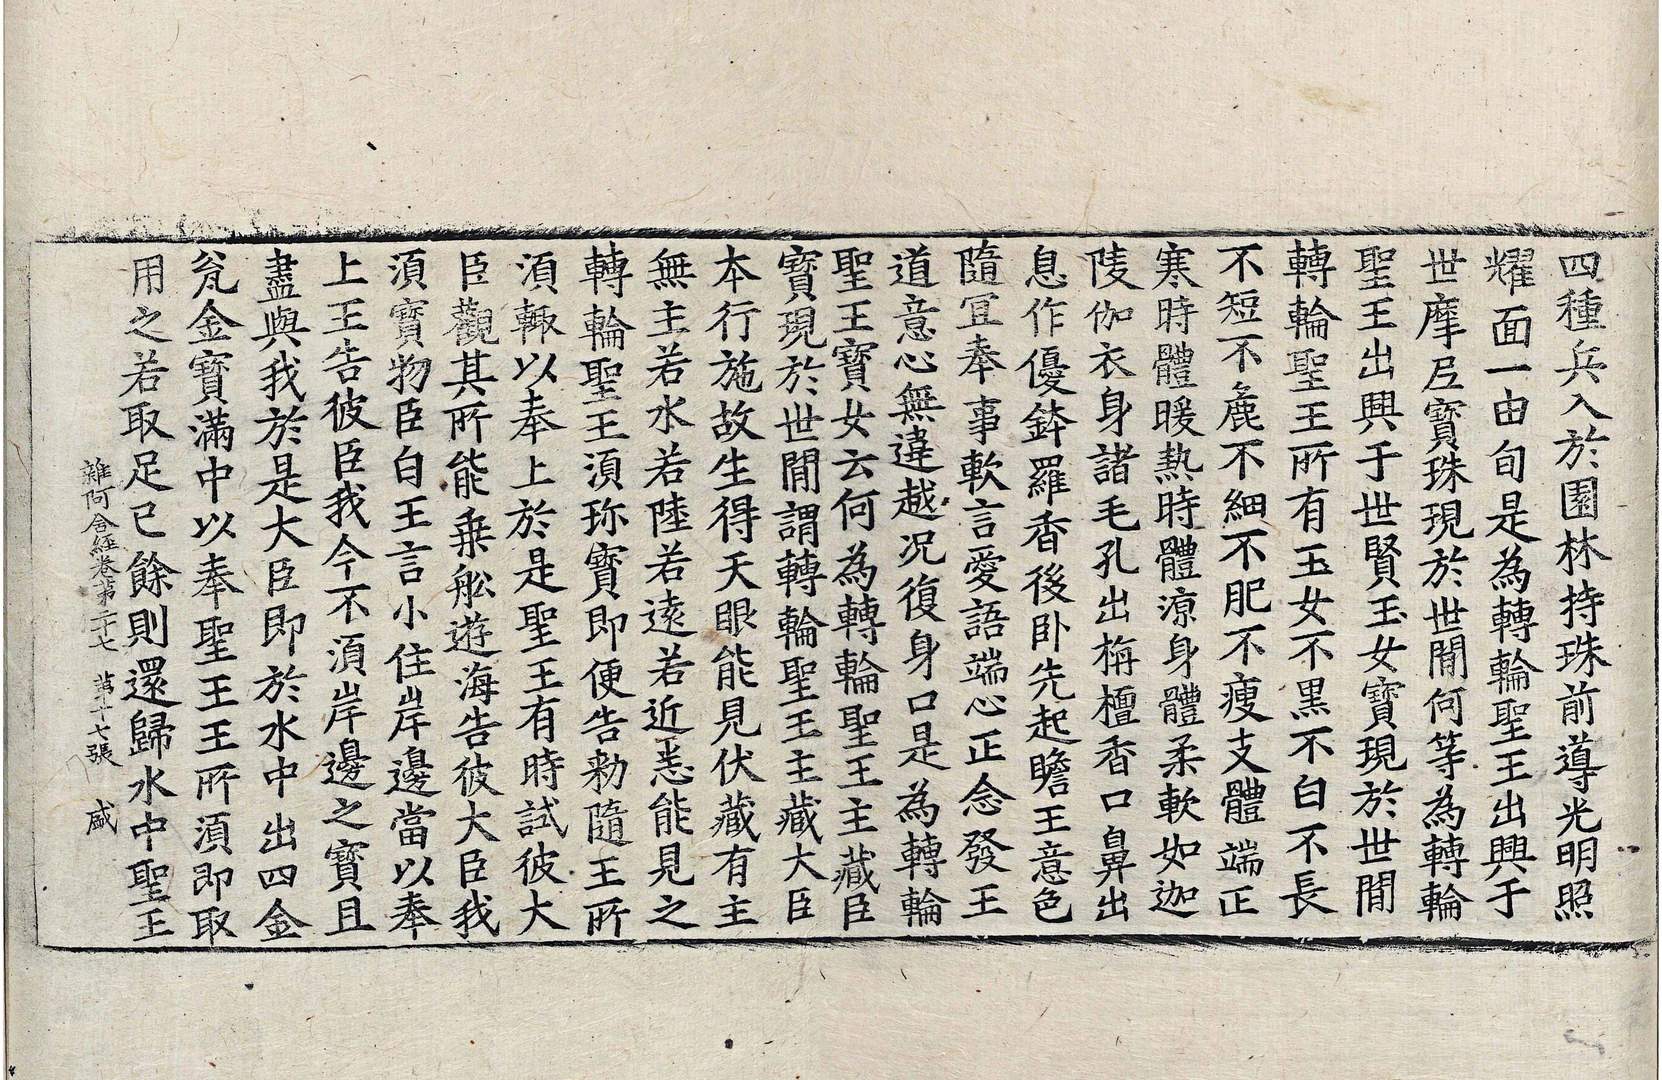 四種兵入於園林持珠前導光明照
耀面一由旬是為轉輪聖王出興于
世摩尼寶珠現於世間何等為轉輪
聖王出興于世賢玉女寶現於世間
轉輪聖王所有玉女不黑不白不長
不短不麁不細不肥不瘦支體端正
寒時體暖熱時體涼身體柔軟如迦
陵伽衣身諸毛孔出栴檀香口鼻出
息作優鉢羅香後卧先起瞻王意色
隨宜奉事軟言愛語端心正念發王
道意心無違越况復身口是為轉輪
聖王寶女云何為轉輪聖王主藏臣
寶現於世間謂轉輪聖王主藏大臣
本行施故生得天眼能見伏藏有主
無主若水若陸若遠若近悉能見之
轉輪聖王須珎寶即便告勑隨王所
須輙以奉上於是聖王有時試彼大
臣觀其所能乗舩遊海告彼大臣我
須寶物臣白王言小住岸邊當以奉
上王告彼臣我今不須岸邊之寶且
盡與我於是大臣即於水中出四金
瓮金寶滿中以奉聖王王所須即取
用之若取足已餘則還歸水中聖王
雜阿含經卷第二十七 第十七張 盛